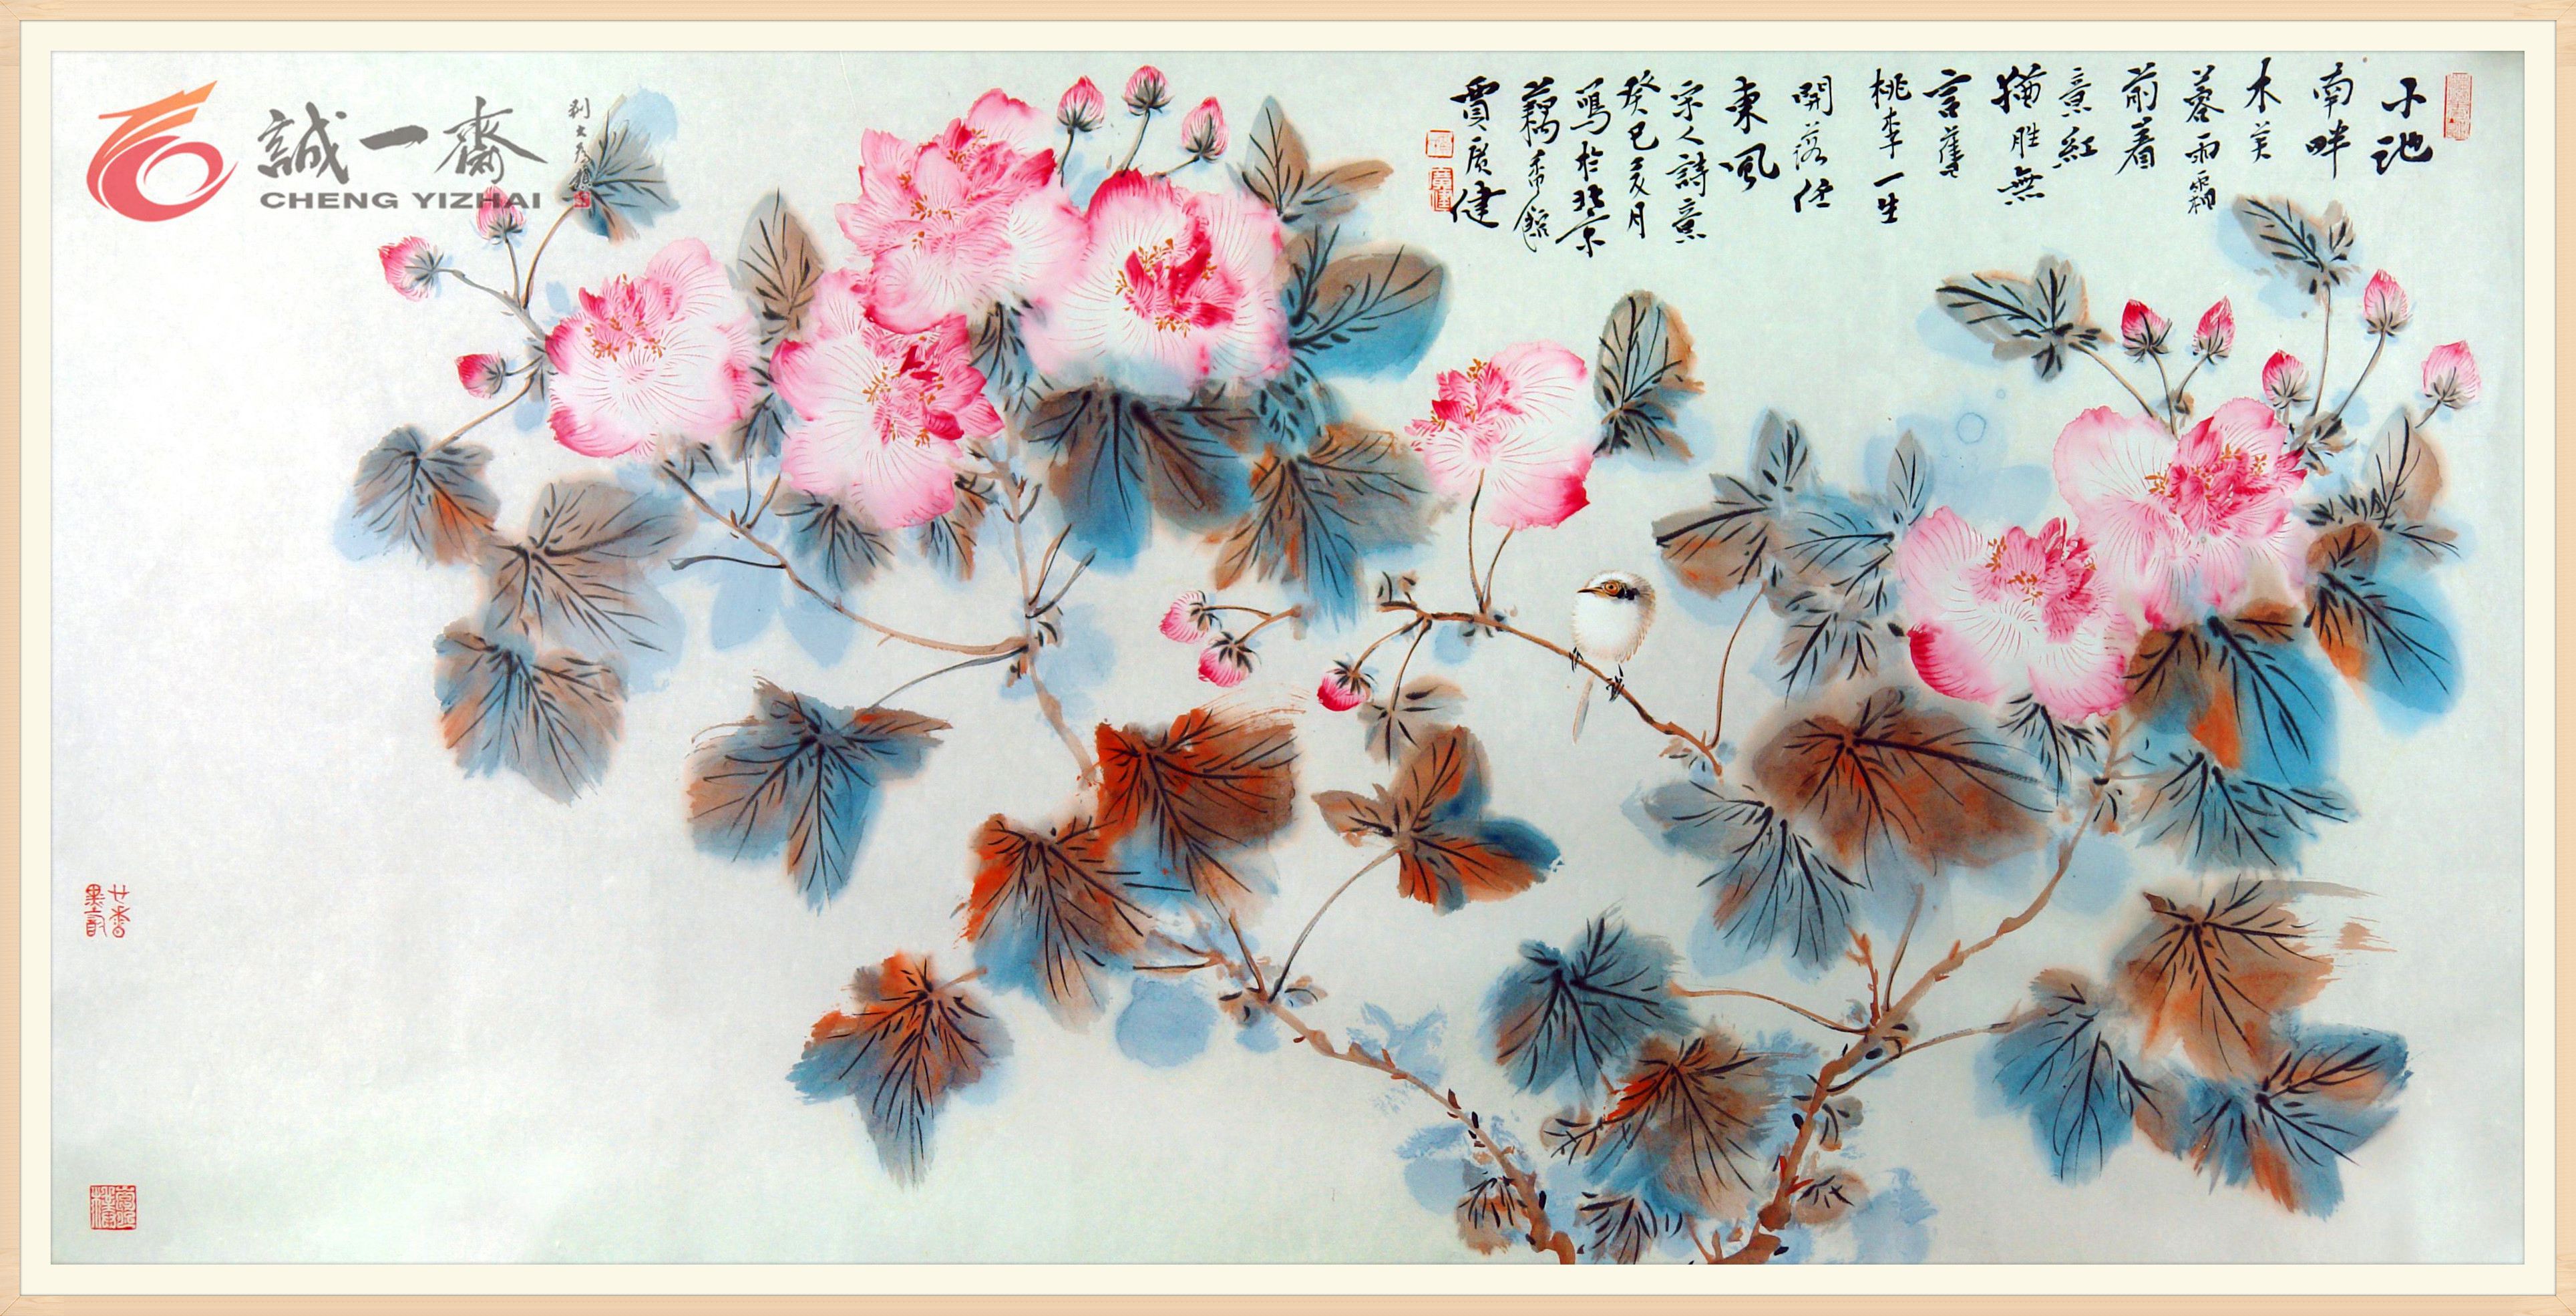 小池
南畔
木芙
蓉雨
霜
前着
意紅
猶勝無
言舊
桃李一生
開落任
東風
宋人詩意
癸巳夏月
寫於北京
藕香館
賈廣健
誠一齋
CHENG YIZHAI